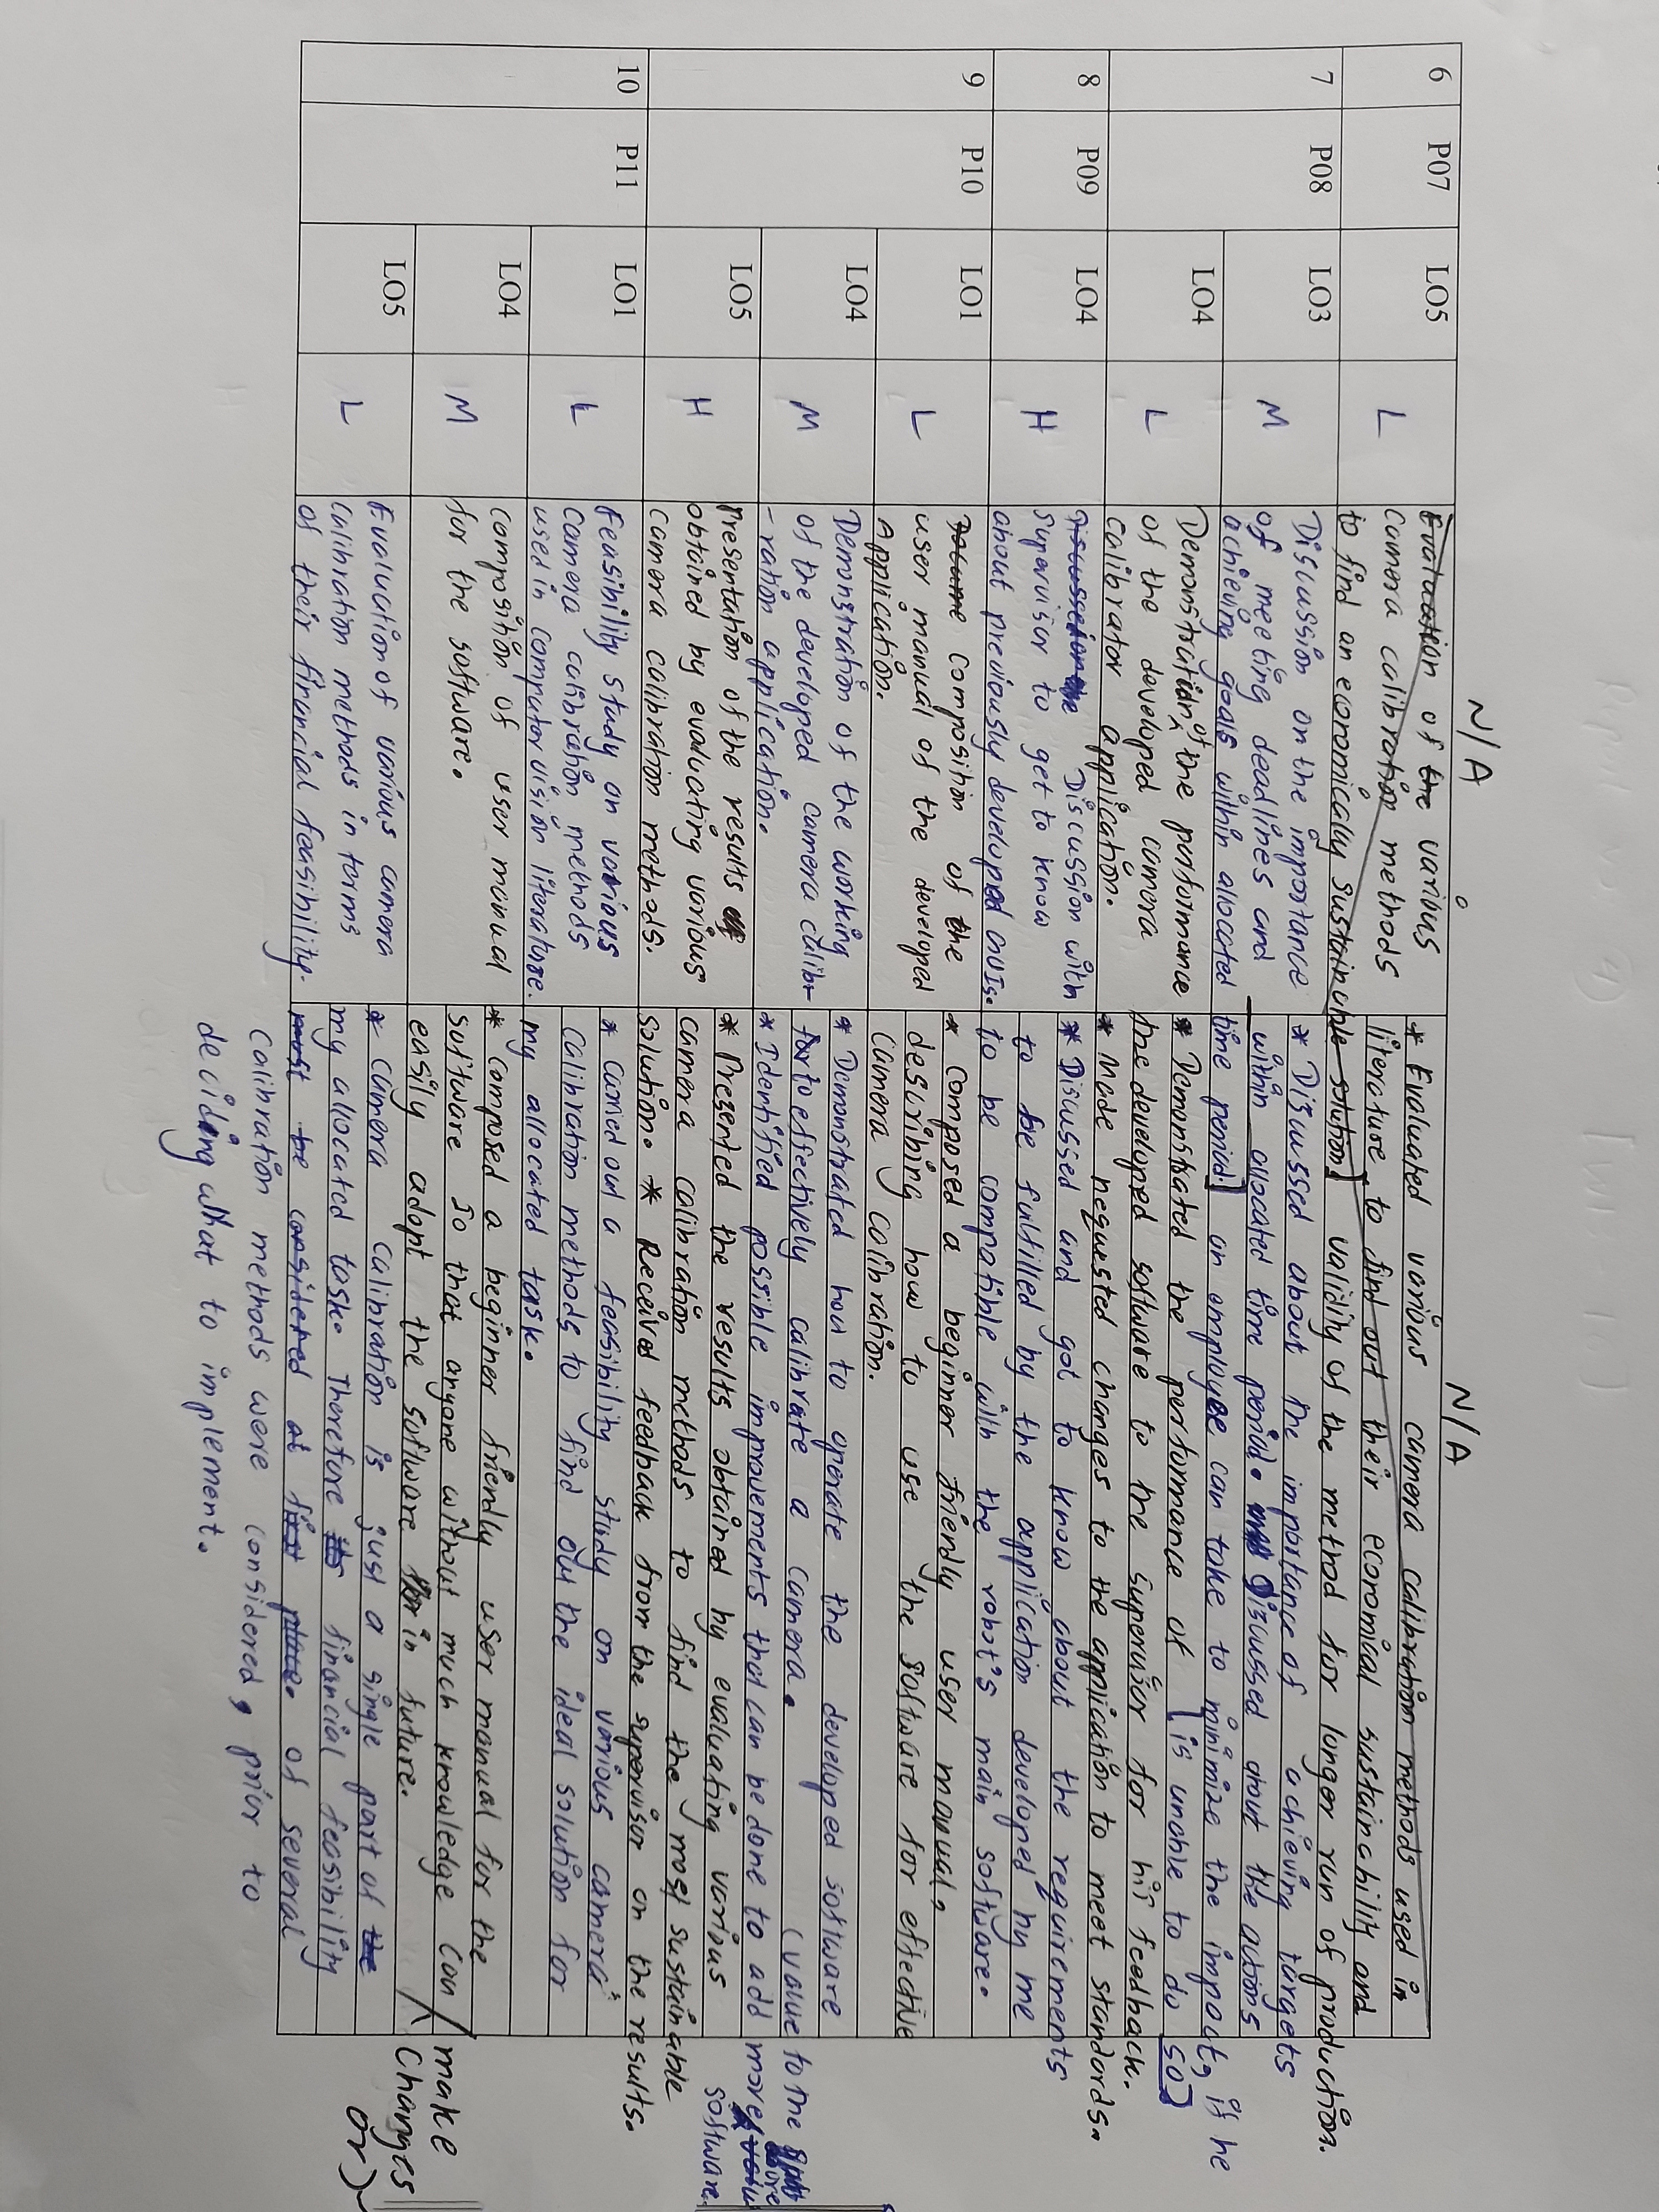 N/A N/A
6 P07 LO5 L Evaluation of the various
camera calibration methods
to find an economically sustainable solution
* Evaluated various camera calibration methods used in
literature to find out their economical sustainability and
validity of the method for longer run of production.
7 P08 LO3 M Discussion on the importance
of meeting deadlines and
achieving goals within allocated
time period.]
* Discussed about the importance of achieving targets
within allocated time period. Discussed about the actions
an employee can take to minimize the impact, if he
[is unable to do so]
LO4 L Demonstration of the performance
of the developed camera
calibrator application.
* Demonstrated the performance of
the developed software to the supervisor for his feedback.
* Made requested changes to the application to meet standards.
8 P09 LO4 H Discussion with
Supervisor to get to know
about previously developed GUIs.
* Discussed and got to know about the requirements
to be fulfilled by the application developed by me
to be compatible with the robot's main software.
9 P10 LO1 L composition of the
user manual of the developed
Application.
* Composed a beginner friendly user manual,
describing how to use the software for effective
camera calibration.
LO4 M Demonstration of the working
of the developed camera calib-
-ration application.
* Demonstrated how to operate the developed software
to effectively calibrate a camera.
* Identified possible improvements that can be done to add more
(value to the
software.
LO5 H Presentation of the results
obtained by evaluating various
camera calibration methods.
* Presented the results obtained by evaluating various
camera calibration methods to find the most sustainable
solution. * Received feedback from the supervisor on the results.
10 P11 LO1 L Feasibility study on various
camera calibration methods
used in computer vision literature.
* Carried out a feasibility study on various camera
calibration methods to find out the ideal solution for
my allocated task.
LO4 M composition of user manual
for the software.
* Composed a beginner friendly user manual for the
software so that anyone without much knowledge can
easily adopt the software in future.
make
changes
on)
LO5 L Evaluation of various camera
calibration methods in terms
of their financial feasibility.
* Camera calibration is just a single part of the
my allocated task. Therefore financial feasibility
must be considered at first place. of several
calibration methods were considered, prior to
deciding what to implement.